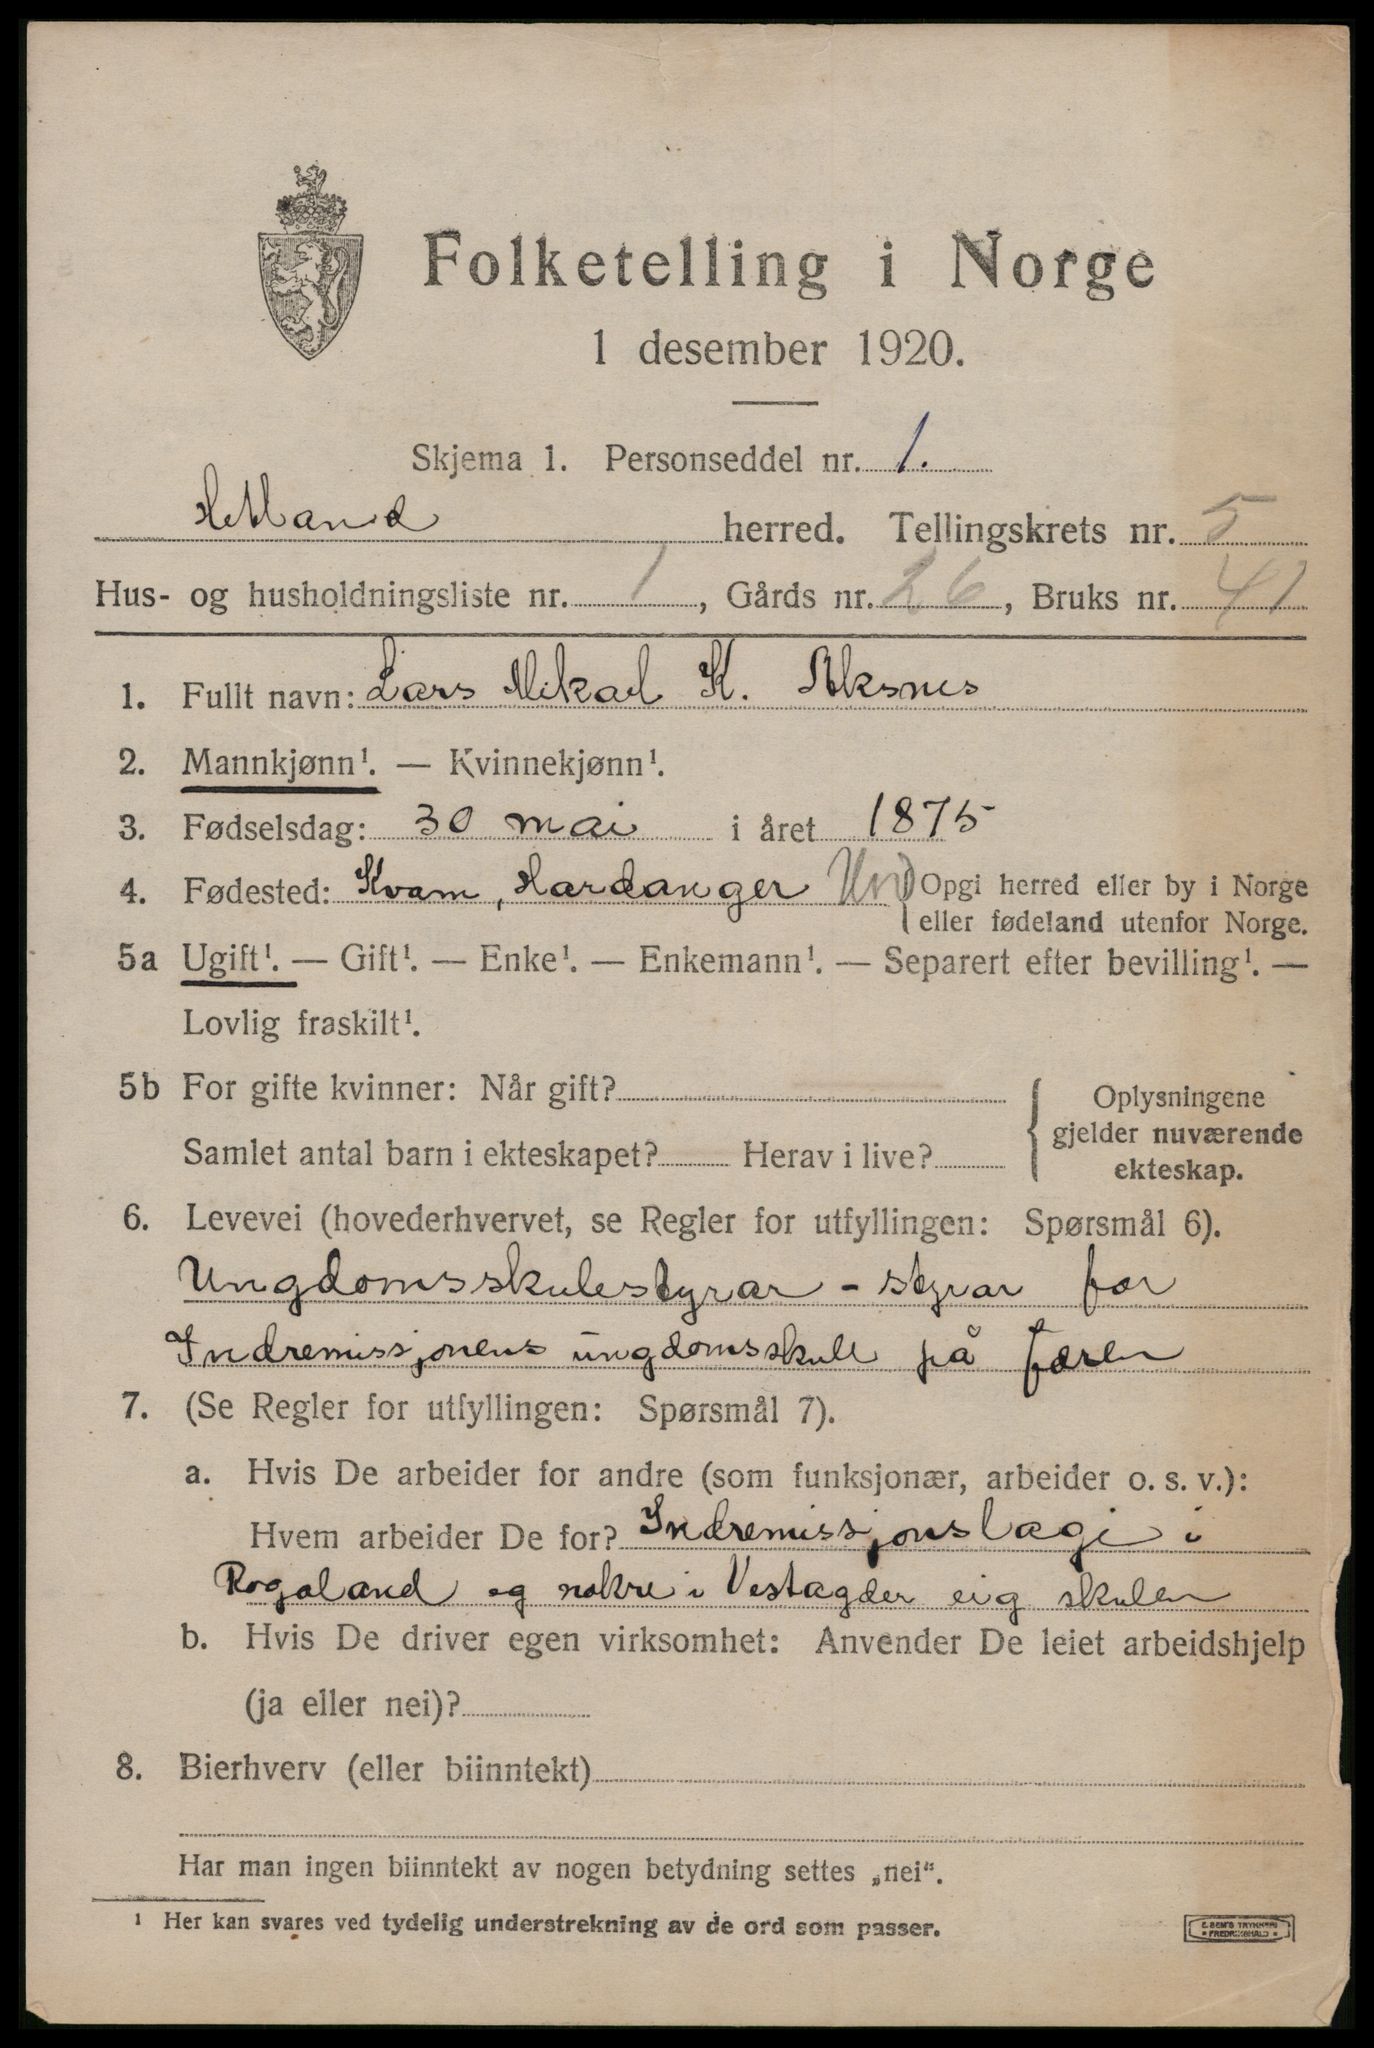 Folketelling i Norge
1 desember 1920.
Skjema 1. Personseddel nr. 1.
Hetland herred. Tellingskrets nr. 5
Hus- og husholdningsliste nr. 1, Gårds nr. 26, Bruks nr. 41
1. Fullt navn: Lars Mikael K. Aksnes
2. Mannkjønn¹. — Kvinnekjønn¹.
3. Fødselsdag: 30 mai i året 1875
4. Fødested: Kvam, Hardanger { Opgi herred eller by i Norge
eller fødeland utenfor Norge.
5a Ugift¹. — Gift¹. — Enke¹. — Enkemann¹. — Separert efter bevilling¹. —
Lovlig fraskilt¹.
5b For gifte kvinner: Når gift?
Samlet antal barn i ekteskapet? Herav i live?
{ Oplysningene
gjelder nuværende
ekteskap.
6. Levevei (hovederhvervet, se Regler for utfyllingen: Spørsmål 6).
Ungdomsskulestyrar - styrar for
Indremissjonens ungdomsskule på Jæren
7. (Se Regler for utfyllingen: Spørsmål 7).
a. Hvis De arbeider for andre (som funksjonær, arbeider o. s. v.):
Hvem arbeider De for? Indremissjonslagi i
Rogaland og nokre i Vestagder eig skulen
b. Hvis De driver egen virksomhet: Anvender De leiet arbeidshjelp
(ja eller nei)?
8. Bierhverv (eller biinntekt)
Har man ingen biinntekt av nogen betydning settes „nei“.
¹ Her kan svares ved tydelig understrekning av de ord som passer.
E. SEM'S TRYKKERI
* FREDRIKSHALD *